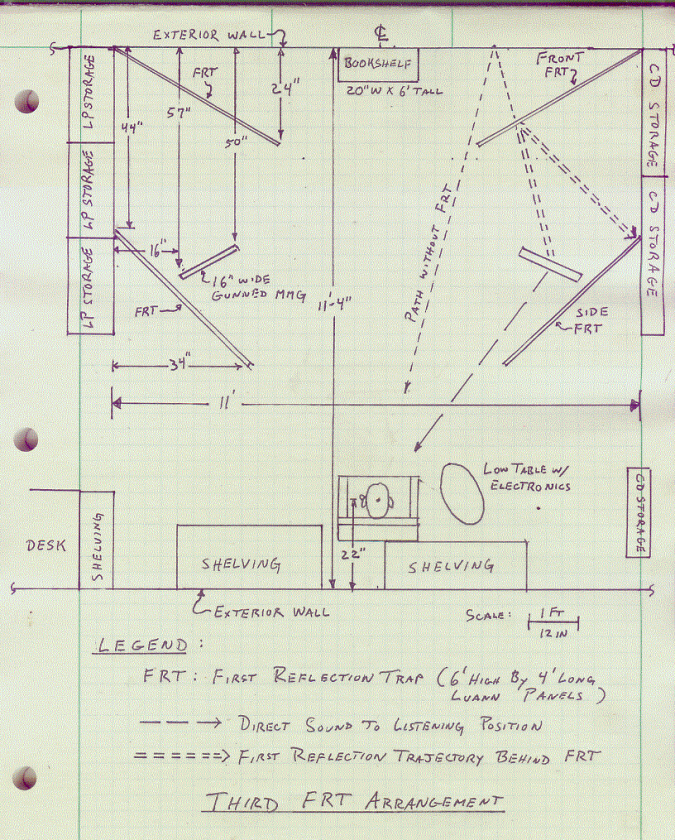 EXTERIOR WALL
℄
LP STORAGE
LP STORAGE
LP STORAGE
FRT
24"
57"
50"
44"
BOOKSHELF
20"W X 6' TALL
FRONT
FRT
CD STORAGE
CD STORAGE
PATH WITHOUT FRT
16"
16" WIDE
GUNNED MMG
11'-4"
FRT
SIDE
FRT
34"
11'
LOW TABLE W/
ELECTRONICS
CD STORAGE
DESK
SHELVING
SHELVING
22"
SHELVING
EXTERIOR WALL
SCALE:
1 FT
12 IN
LEGEND:
FRT: FIRST REFLECTION TRAP (6' HIGH BY 4' LONG
LUANN PANELS)
DIRECT SOUND TO LISTENING POSITION
FIRST REFLECTION TRAJECTORY BEHIND FRT
THIRD FRT ARRANGEMENT